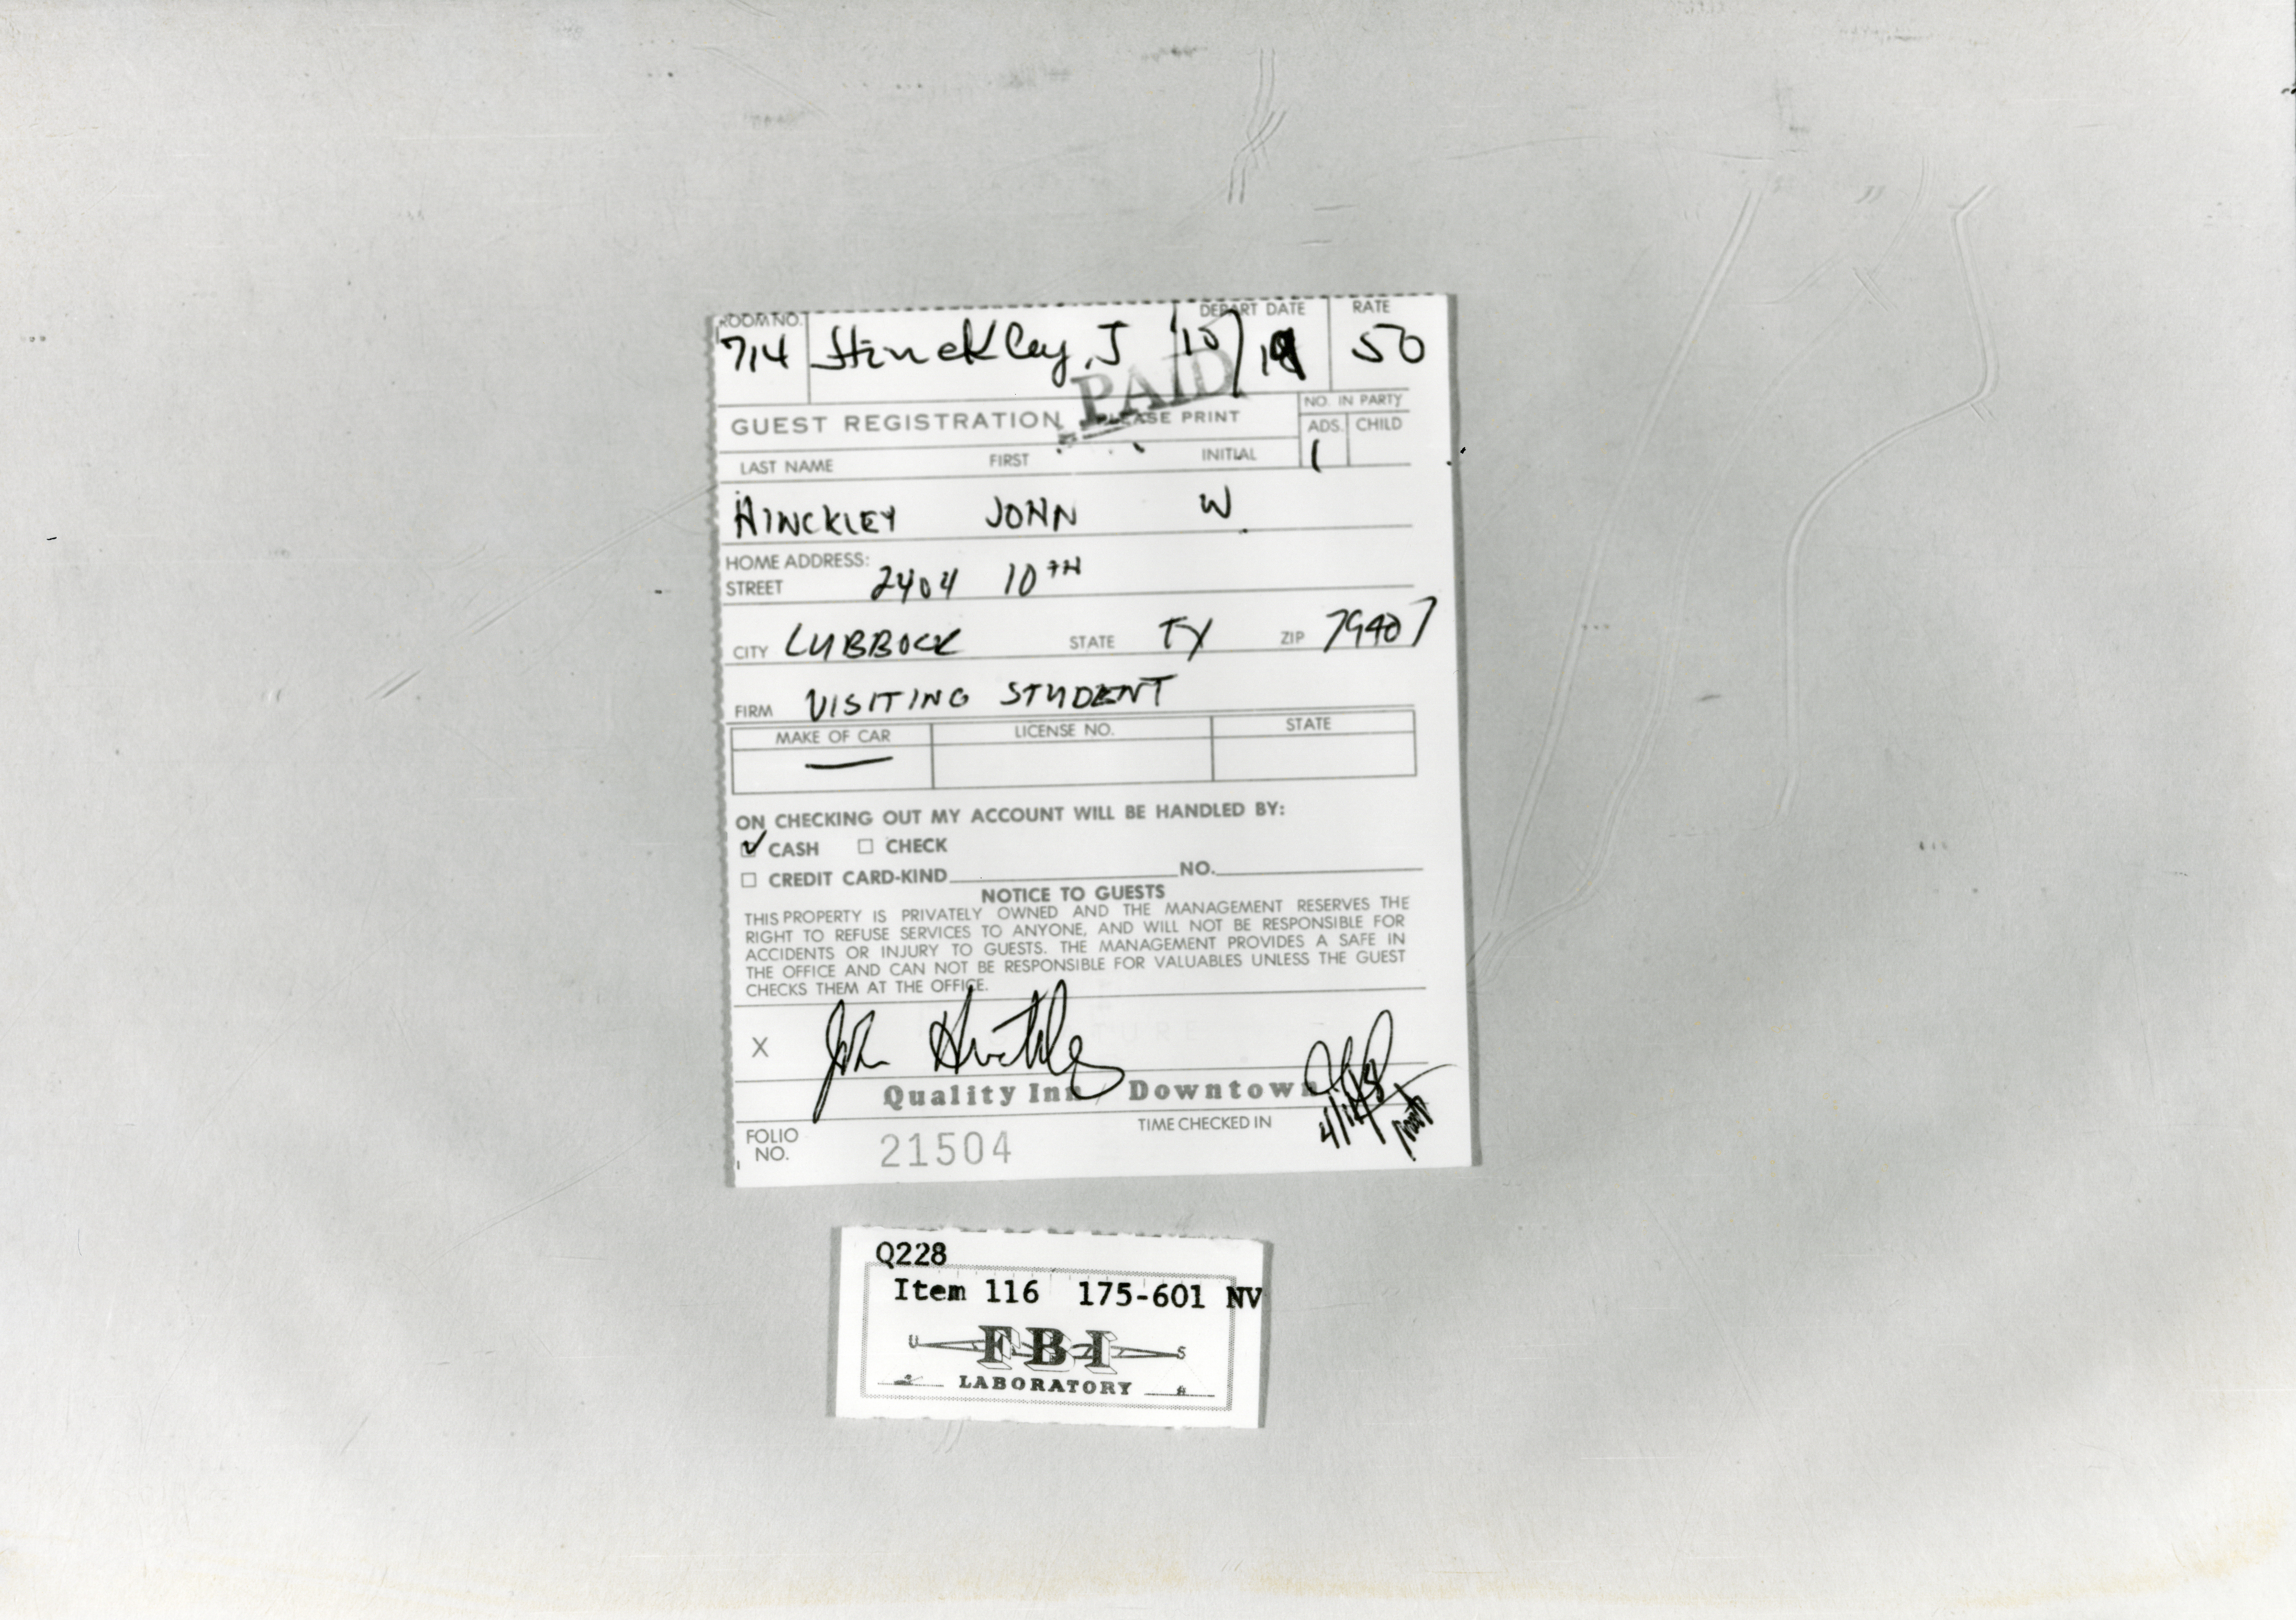 ROOM NO. DEPART DATE RATE
714 Hinckley, J 10/ 50
PAID
GUEST REGISTRATION PLEASE PRINT NO. IN PARTY
ADS. CHILD
LAST NAME FIRST INITIAL 1
HINCKLEY JOHN W.
HOME ADDRESS:
STREET 2404 10TH
CITY LUBBOCK STATE TX ZIP 79407
FIRM VISITING STUDENT
MAKE OF CAR LICENSE NO. STATE
—
ON CHECKING OUT MY ACCOUNT WILL BE HANDLED BY:
CASH CHECK
CREDIT CARD-KIND NO.
NOTICE TO GUESTS
THIS PROPERTY IS PRIVATELY OWNED AND THE MANAGEMENT RESERVES THE
RIGHT TO REFUSE SERVICES TO ANYONE, AND WILL NOT BE RESPONSIBLE FOR
ACCIDENTS OR INJURY TO GUESTS. THE MANAGEMENT PROVIDES A SAFE IN
THE OFFICE AND CAN NOT BE RESPONSIBLE FOR VALUABLES UNLESS THE GUEST
CHECKS THEM AT THE OFFICE.
X John Hinckley
Quality Inn / Downtown
TIME CHECKED IN
FOLIO
NO. 21504
Q228
Item 116 175-601 NV
U FBI S
LABORATORY